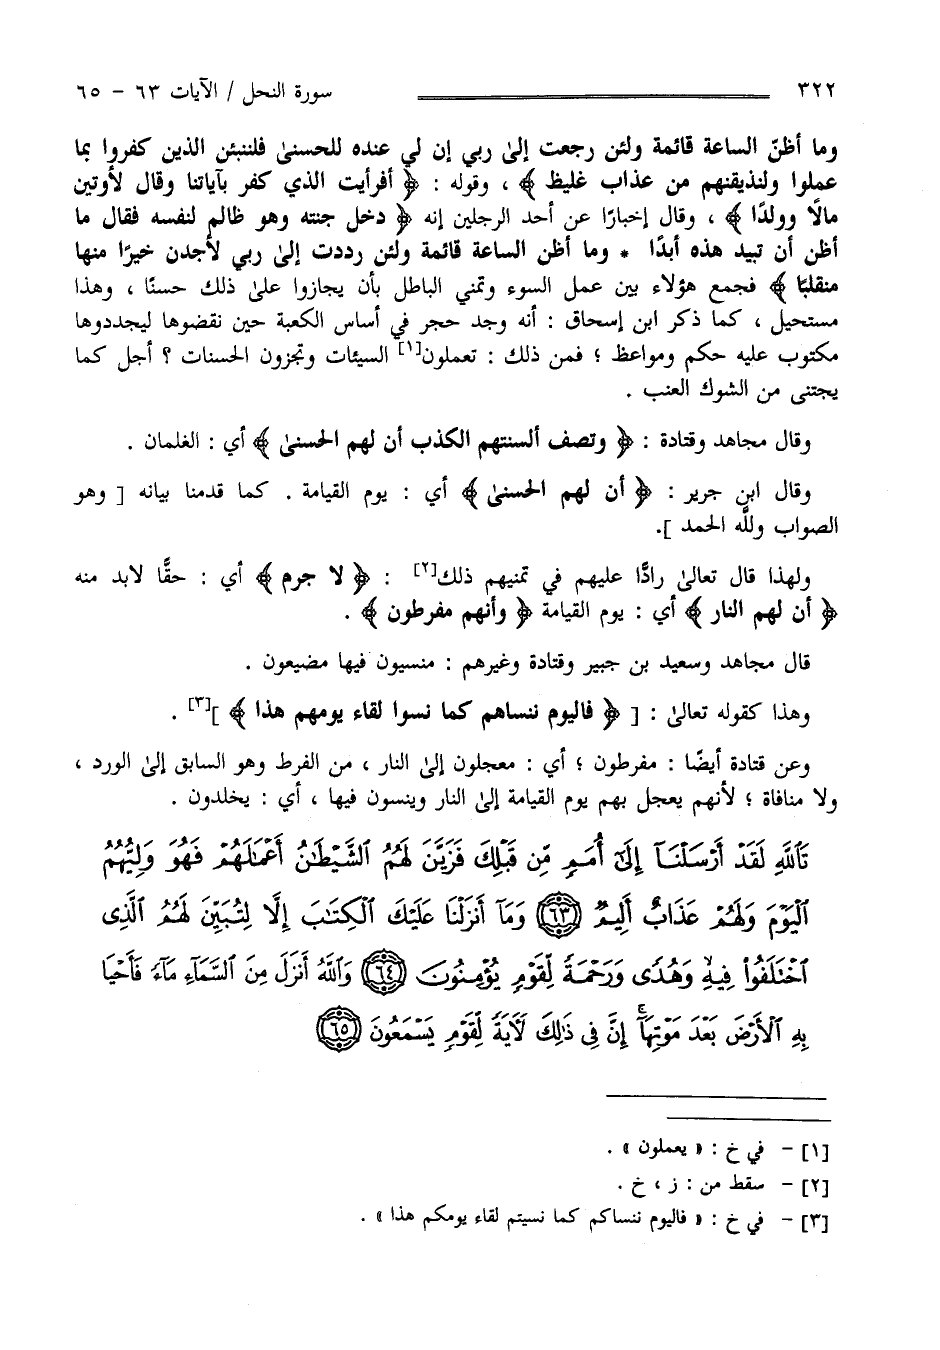 ٣٢٢ سورة النحل / الآيات ٦٣ - ٦٥
وما أظنّ الساعة قائمة ولئن رجعت إلىٰ ربي إن لي عنده للحسنىٰ فلننبئن الذين كفروا بما
عملوا ولنذيقنهم من عذاب غليظ ﴾ ، وقوله : ﴿ أفرأيت الذي كفر بآياتنا وقال لأوتين
مالًا وولدًا ﴾ ، وقال إخبارًا عن أحد الرجلين إنه ﴿ دخل جنته وهو ظالم لنفسه فقال ما
أظن أن تبيد هذه أبدًا * وما أظن الساعة قائمة ولئن رددت إلىٰ ربي لأجدن خيرًا منها
منقلبًا ﴾ فجمع هؤلاء بين عمل السوء وتمني الباطل بأن يجازوا علىٰ ذلك حسنًا ، وهذا
مستحيل ، كما ذكر ابن إسحاق : أنه وجد حجر في أساس الكعبة حين نقضوها ليجددوها
مكتوب عليه حكم ومواعظ ؛ فمن ذلك : تعملون[١] السيئات وتجزون الحسنات ؟ أجل كما
يجتنى من الشوك العنب .
وقال مجاهد وقتادة : ﴿ وتصف ألسنتهم الكذب أن لهم الحسنىٰ ﴾ أي : الغلمان .
وقال ابن جرير : ﴿ أن لهم الحسنىٰ ﴾ أي : يوم القيامة . كما قدمنا بيانه [ وهو
الصواب وللَّه الحمد ].
ولهذا قال تعالىٰ رادًّا عليهم في تمنيهم ذلك[٢] : ﴿ لا جرم ﴾ أي : حقًّا لابد منه
﴿ أن لهم النار ﴾ أي : يوم القيامة ﴿ وأنهم مفرطون ﴾ .
قال مجاهد وسعيد بن جبير وقتادة وغيرهم : منسيون فيها مضيعون .
وهذا كقوله تعالىٰ : [ ﴿ فاليوم ننساهم كما نسوا لقاء يومهم هذا ﴾ ][٣] .
وعن قتادة أيضًا : مفرطون ؛ أي : معجلون إلىٰ النار ، من الفرط وهو السابق إلىٰ الورد ،
ولا منافاة ؛ لأنهم يعجل بهم يوم القيامة إلىٰ النار وينسون فيها ، أي : يخلدون .
تَٱللَّهِ لَقَدْ أَرْسَلْنَآ إِلَىٰٓ أُمَمٍ مِّن قَبْلِكَ فَزَيَّنَ لَهُمُ ٱلشَّيْطَٰنُ أَعْمَٰلَهُمْ فَهُوَ وَلِيُّهُمُ
ٱلْيَوْمَ وَلَهُمْ عَذَابٌ أَلِيمٌ ٦٣ وَمَآ أَنزَلْنَا عَلَيْكَ ٱلْكِتَٰبَ إِلَّا لِتُبَيِّنَ لَهُمُ ٱلَّذِى
ٱخْتَلَفُوا۟ فِيهِ وَهُدًى وَرَحْمَةً لِّقَوْمٍ يُؤْمِنُونَ ٦٤ وَٱللَّهُ أَنزَلَ مِنَ ٱلسَّمَآءِ مَآءً فَأَحْيَا
بِهِ ٱلْأَرْضَ بَعْدَ مَوْتِهَآ ۚ إِنَّ فِى ذَٰلِكَ لَءَايَةً لِّقَوْمٍ يَسْمَعُونَ ٦٥
[١] - في خ : « يعملون » .
[٢] - سقط من : ز ، خ .
[٣] - في خ : « فاليوم ننساكم كما نسيتم لقاء يومكم هذا » .